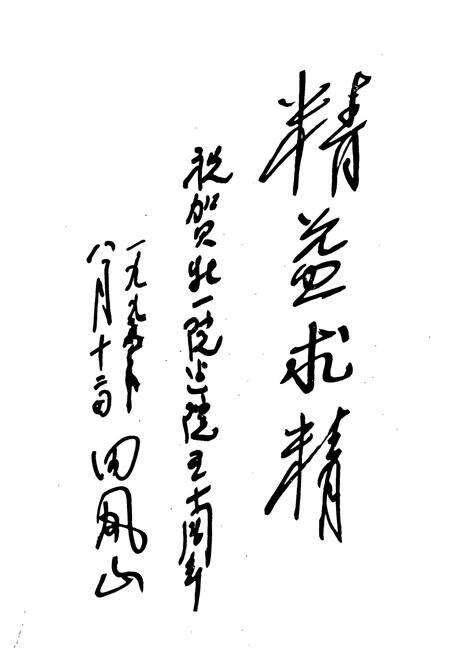 精益求精
祝贺牡一院建院五十周年
一九九五年
八月十二日 田凤山